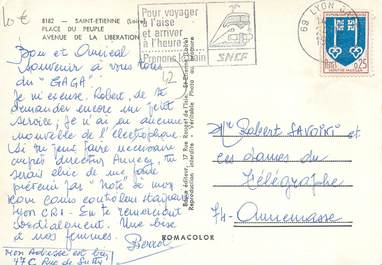 10 €
8182 - SAINT-ETIENNE (Loire)
PLACE DU PEUPLE
AVENUE DE LA LIBERATION
Pour voyager
à l'aise
et arriver
à l'heure
Prenons le train
SNCF
69 LYON
0,25
42
Bon et Amical
Souvenir à vous tous
du "GAGA"
Je m'excuse, Robert, de te
demander encore un petit
service; je n'ai eu aucune
nouvelle de l'électrophone.
Si tu peux faire nécessaire
auprès direction Annecy, tu
serais chic de me faire
prévenir par "Note" à mon
nom
mon CRI. En te remerciant
cordialement. Une bise
à nos femmes.
Mon Adresse est bien
47 C Rue de
Mr Robert SAVOINI et
ces dames du
Télégraphe
74 - Annemasse
17 Rue Rouget de l'Isle, St-Etienne (Loire)
Reproduction interdite - Véritable Photo au bromure
ROMACOLOR